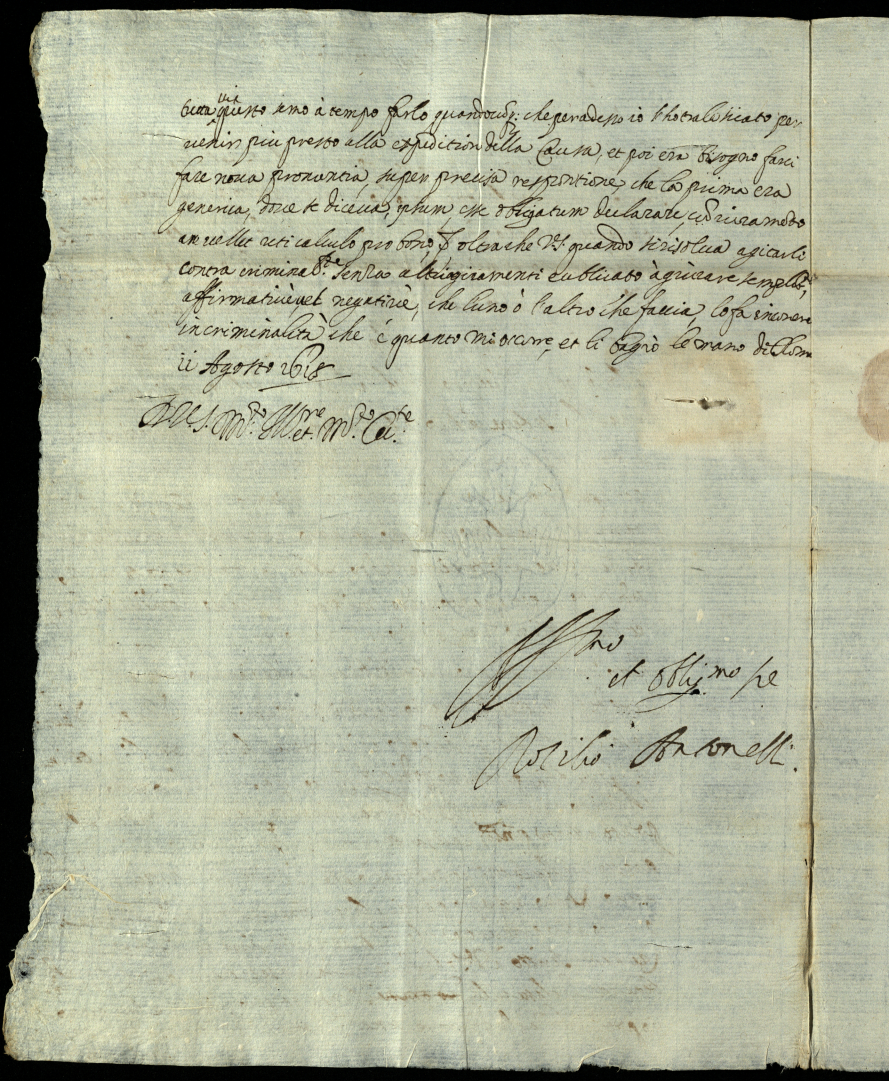 questo semo à tempo farlo quandocunq; che per adesso io l'ho tralasciato per
venir piu presto alla expeditión della Causa, et poi era bisogno farci
fare nova pronuntia super precisa responsione, che la prima era
generica, dove se diceva, ipsum esse obligatum declarare,
an vellet uti calculo pro bono, oltra che V.S. quando si risolva agitarli
contra criminalte. senza altri giramenti è ublicato à giurare
affirmativè, vel negativè, che l'uno ò l'altro che faccia, lo fa incorrere
in criminalità che é quanto mi occorre, et li bagiò le mano di Roma
ii Agosto 1618
D. V. S. Mto. Illre. et. Mto.
Affmo
et obligmo se
Antonelli.